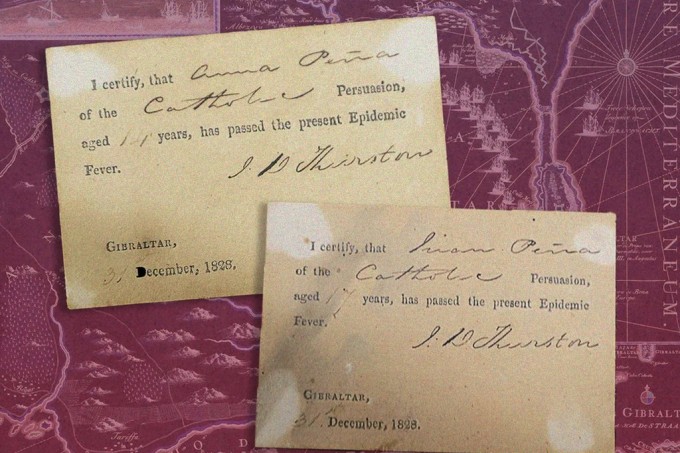 I certify, that Anna Peña
of the Catholic Persuasion,
aged 14 years, has passed the present Epidemic
Fever.
J. D Thurston
GIBRALTAR,
31 December, 1828.
I certify, that Juan Peña
of the Catholic Persuasion,
aged 17 years, has passed the present Epidemic
Fever.
J. D Thurston
GIBRALTAR,
31 December, 1828.
RE MEDITERRANEUM.
GIBRALTAR